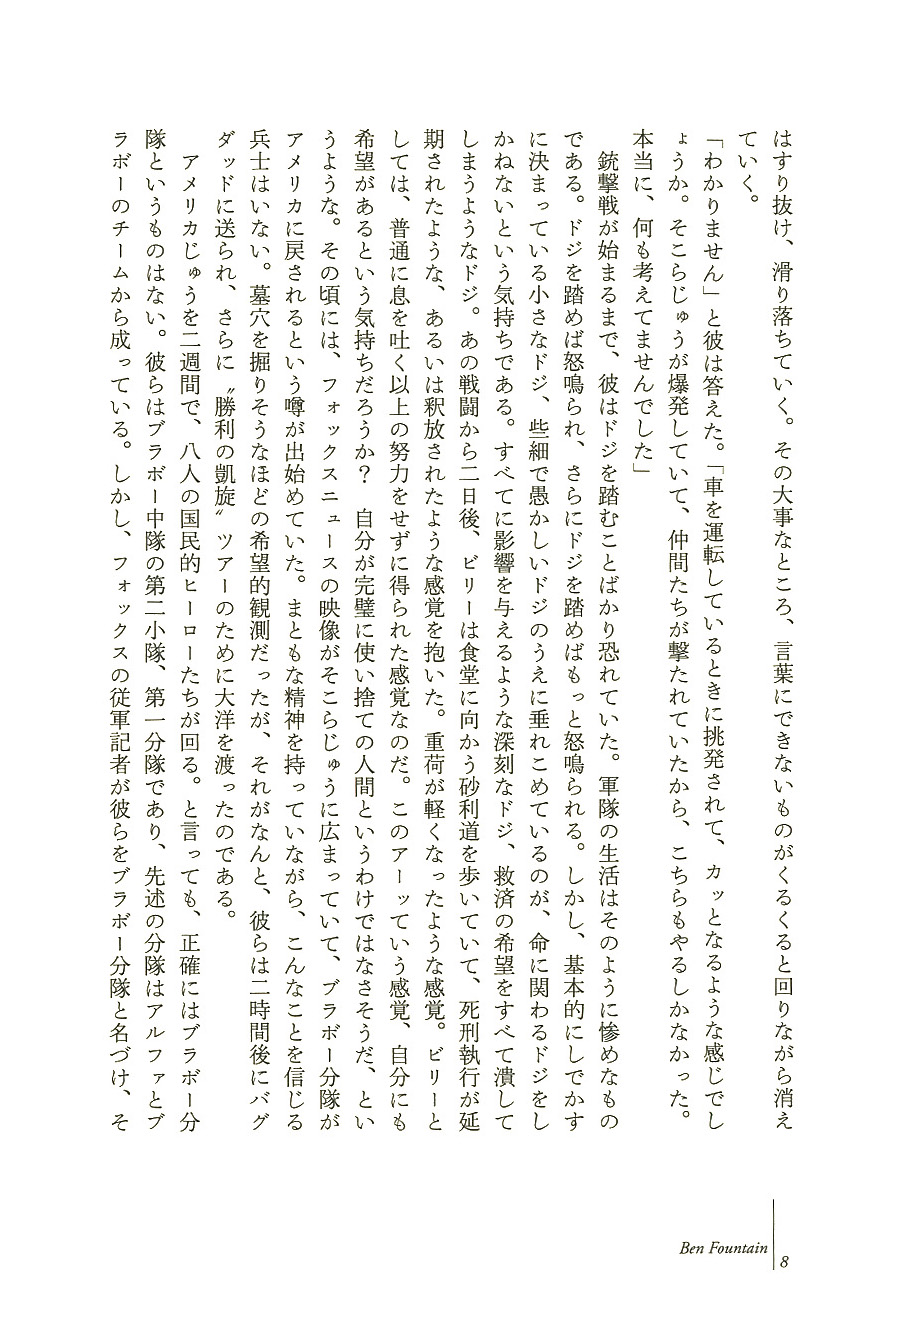 はすり抜け、滑り落ちていく。その大事なところ、言葉にできないものがくるくると回りながら消え
ていく。
「わかりません」と彼は答えた。「車を運転しているときに挑発されて、カッとなるような感じでし
ょうか。そこらじゅうが爆発していて、仲間たちが撃たれていたから、こちらもやるしかなかった。
本当に、何も考えてませんでした」
　銃撃戦が始まるまで、彼はドジを踏むことばかり恐れていた。軍隊の生活はそのように惨めなもの
である。ドジを踏めば怒鳴られ、さらにドジを踏めばもっと怒鳴られる。しかし、基本的にしでかす
に決まっている小さなドジ、些細で愚かしいドジのうえに垂れこめているのが、命に関わるドジをし
かねないという気持ちである。すべてに影響を与えるような深刻なドジ、救済の希望をすべて潰して
しまうようなドジ。あの戦闘から二日後、ビリーは食堂に向かう砂利道を歩いていて、死刑執行が延
期されたような、あるいは釈放されたような感覚を抱いた。重荷が軽くなったような感覚。ビリーと
しては、普通に息を吐く以上の努力をせずに得られた感覚なのだ。このアーッていう感覚、自分にも
希望があるという気持ちだろうか？　自分が完璧に使い捨ての人間というわけではなさそうだ、とい
うような。その頃には、フォックスニュースの映像がそこらじゅうに広まっていて、ブラボー分隊が
アメリカに戻されるという噂が出始めていた。まともな精神を持っていながら、こんなことを信じる
兵士はいない。墓穴を掘りそうなほどの希望的観測だったが、それがなんと、彼らは二時間後にバグ
ダッドに送られ、さらに〝勝利の凱旋〟ツアーのために大洋を渡ったのである。
　アメリカじゅうを二週間で、八人の国民的ヒーローたちが回る。と言っても、正確にはブラボー分
隊というものはない。彼らはブラボー中隊の第二小隊、第一分隊であり、先述の分隊はアルファとブ
ラボーのチームから成っている。しかし、フォックスの従軍記者が彼らをブラボー分隊と名づけ、そ
Ben Fountain
8